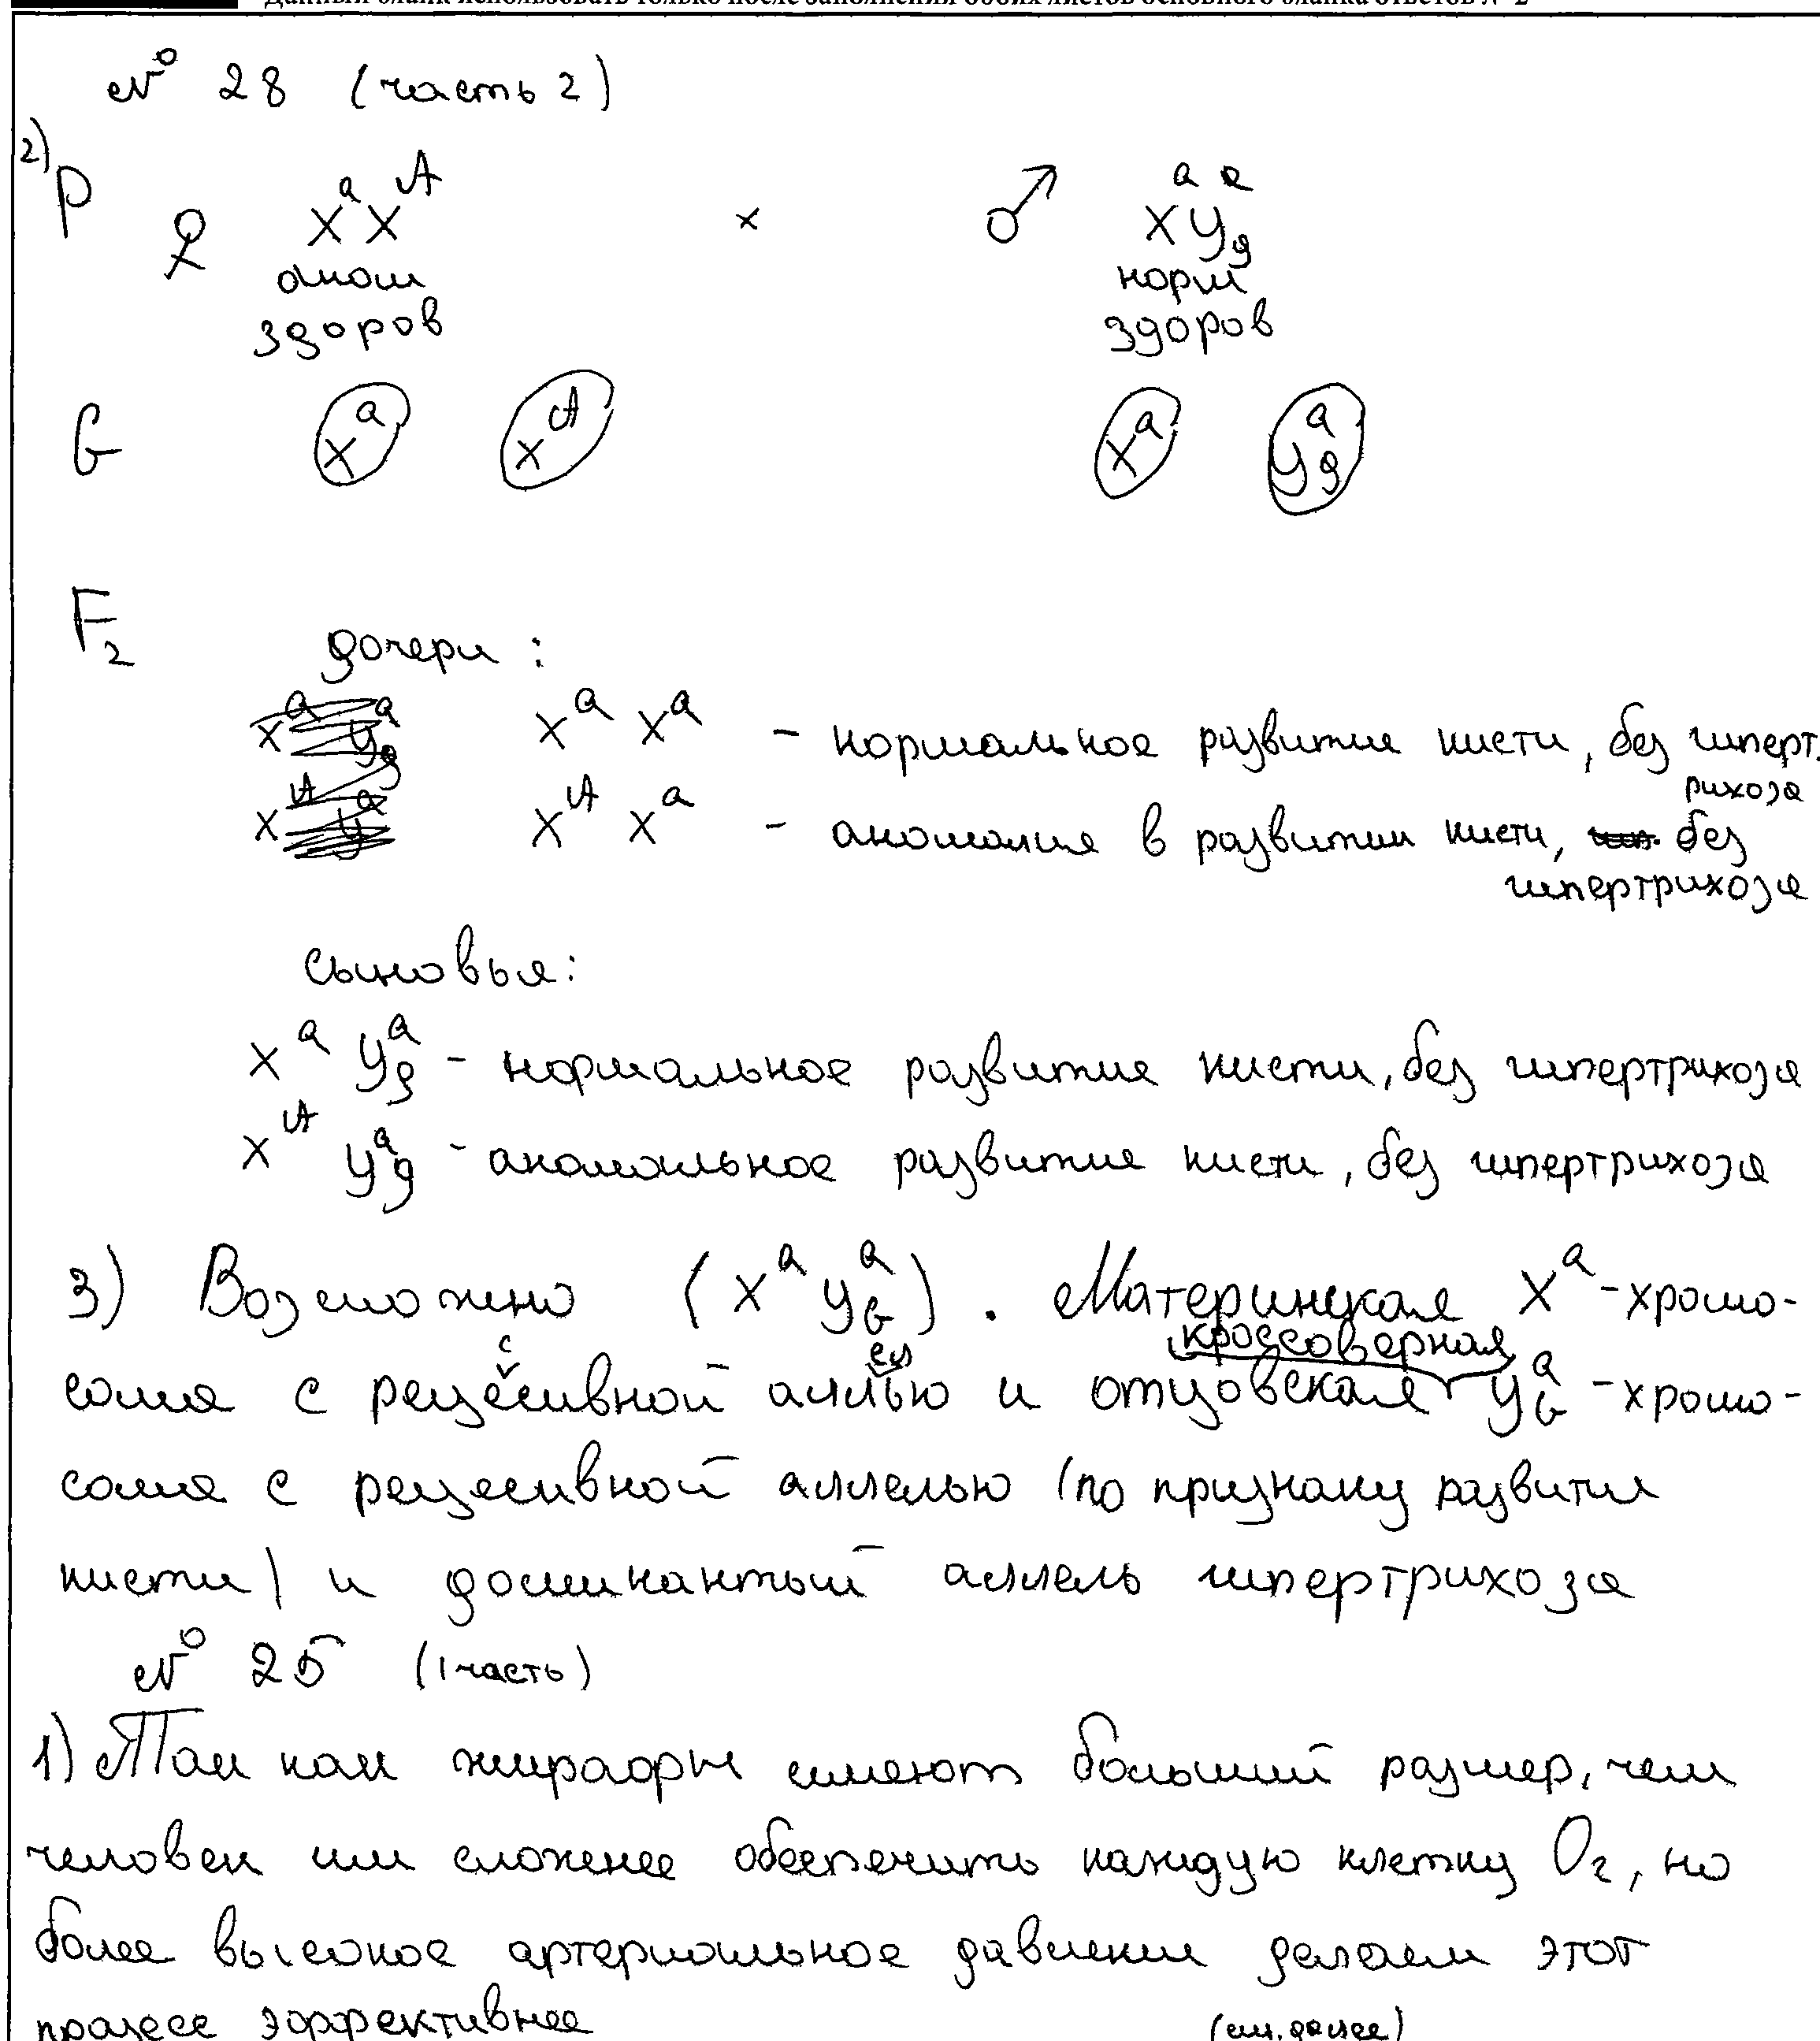 Данный бланк использовать только после заполнения обоих листов основного бланка ответов № 2
№ 28 (часть 2)
2) P ♀ XᵃXᴬ × ♂ XᵃYᵃg
аном норм
здоров здоров
G Xᵃ Xᴬ Xᵃ Yᵃg
F₂ дочери:
XᵃXᵃ - нормальное развитие кисти, без гиперт.
рихоза
XᴬXᵃ - аномалия в развитии кисти, без
гипертрихоза
сыновья:
XᵃYᵃg - нормальное развитие кисти, без гипертрихоза
XᴬYᵃg - аномальное развитие кисти, без гипертрихоза
3) Возможно (XᵃYᵃG). Материнская Xᵃ-хромо-
сома с рецессивной аллелью и отцовская кроссоверная YᵃG-хромо-
сома с рецесивной аллелью (по признаку развития
кисти) и доминантый аллель гипертрихоза
№ 25 (1 часть)
1) Так как жирафы имеют больший размер, чем
человек им сложнее обеспечить каждую клетку O₂, но
более высокое артериальное давление делаем этот
процесс эффективнее
(см. далее)